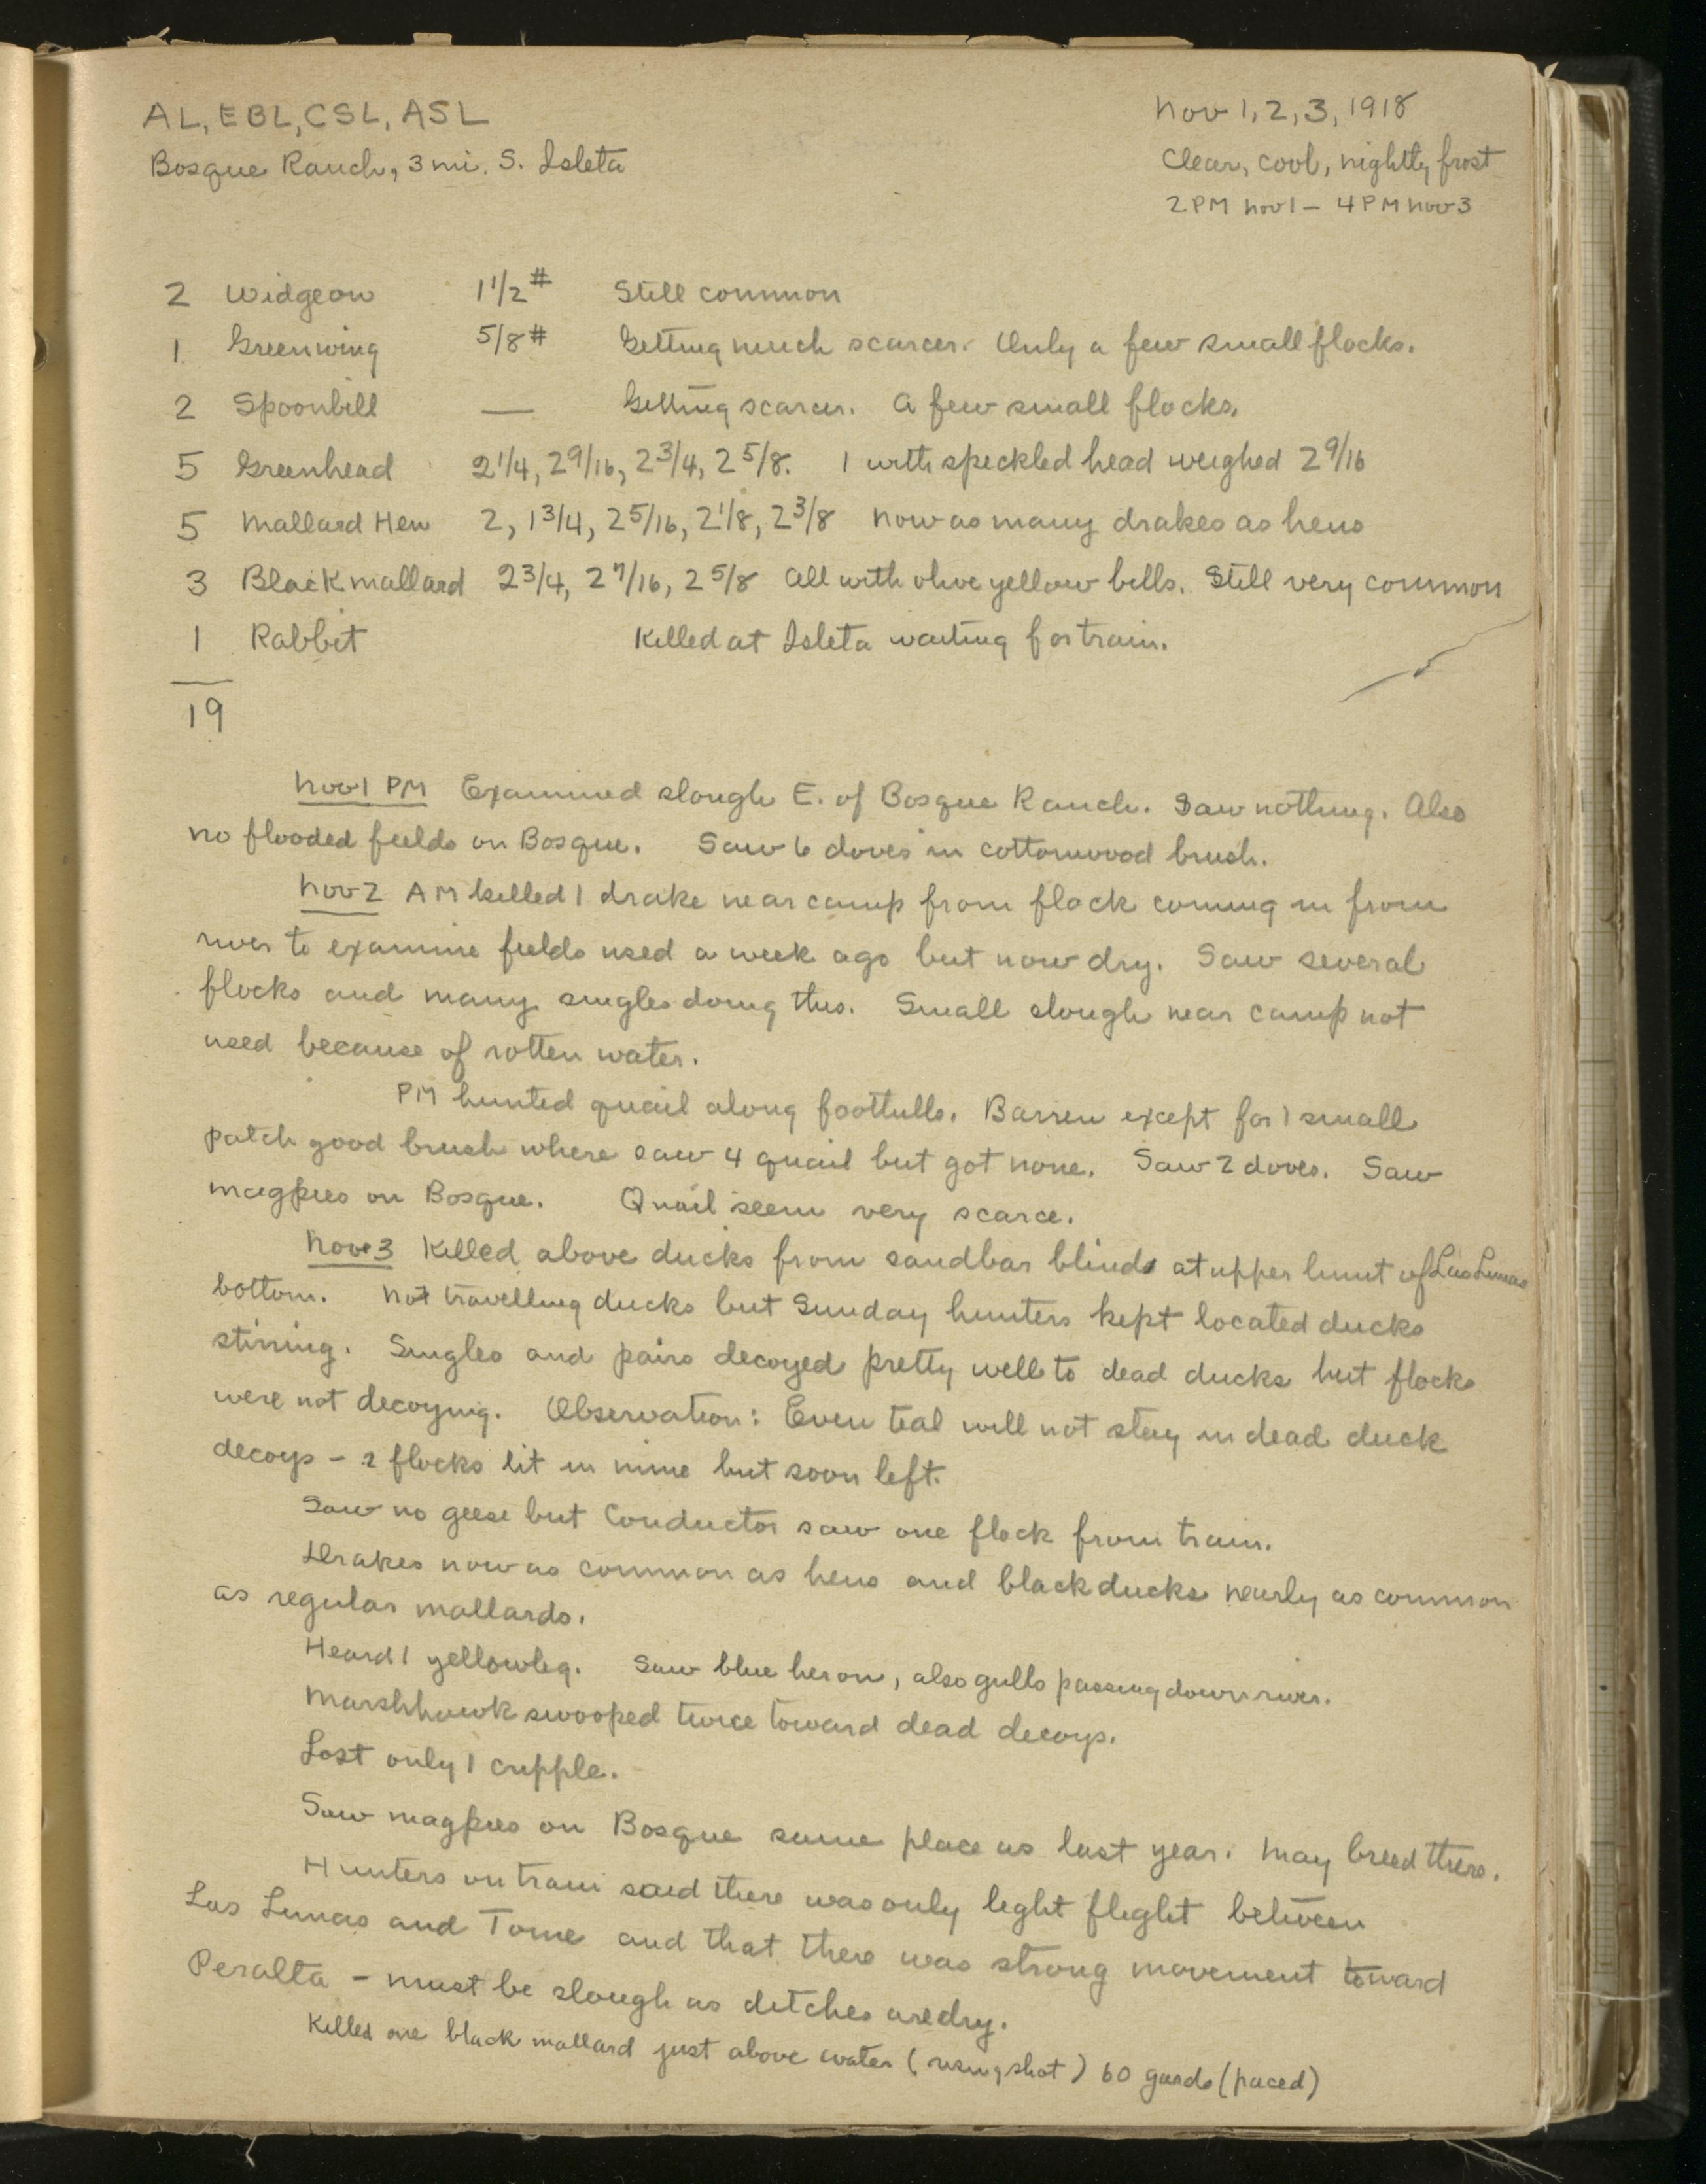 AL, EBL, CSL, ASL
Nov 1, 2, 3, 1918
Bosque Ranch, 3 mi. S. Isleta
Clear, cool, nightly frost
2 PM Nov 1 – 4 PM Nov 3
2 Widgeon 1 1/2 # Still common
1 Greenwing 5/8 # Getting much scarcer. Only a few small flocks.
2 Spoonbill — Getting scarcer. A few small flocks.
5 Greenhead 2 1/4, 2 9/16, 2 3/4, 2 5/8. 1 with speckled head weighed 2 9/16
5 Mallard Hen 2, 1 3/4, 2 5/16, 2 1/8, 2 3/8 Now as many drakes as hens
3 Black mallard 2 3/4, 2 7/16, 2 5/8 All with olive yellow bills. Still very common
1 Rabbit Killed at Isleta waiting for train.
19
Nov 1 PM Examined slough E. of Bosque Ranch. Saw nothing. Also
no flooded fields on Bosque. Saw 6 doves in cottonwood brush.
Nov 2 AM killed 1 drake near camp from flock coming in from
river to examine fields used a week ago but now dry. Saw several
flocks and many singles doing this. Small slough near camp not
used because of rotten water.
PM hunted quail along foothills. Barren except for 1 small
patch good brush where saw 4 quail but got none. Saw 2 doves. Saw
magpies on Bosque. Quail seem very scarce.
Nov 3 Killed above ducks from sandbar blinds at upper limit of Los Lunas
bottom. Not travelling ducks but Sunday hunters kept located ducks
stirring. Singles and pairs decoyed pretty well to dead ducks but flocks
were not decoying. Observation: Even teal will not stay in dead duck
decoys – 2 flocks lit in mine but soon left.
Saw no geese but Conductor saw one flock from train.
Drakes now as common as hens and black ducks nearly as common
as regular mallards.
Heard 1 yellowleg. Saw blue heron, also gulls passing down river.
Marshhawk swooped twice toward dead decoys.
Lost only 1 cripple.
Saw magpies on Bosque same place as last year. May breed there.
Hunters on train said there was only light flight between
Los Lunas and Tome and that there was strong movement toward
Peralta – must be slough as ditches are dry.
Killed one black mallard just above water (rising shot) 60 yards (paced)